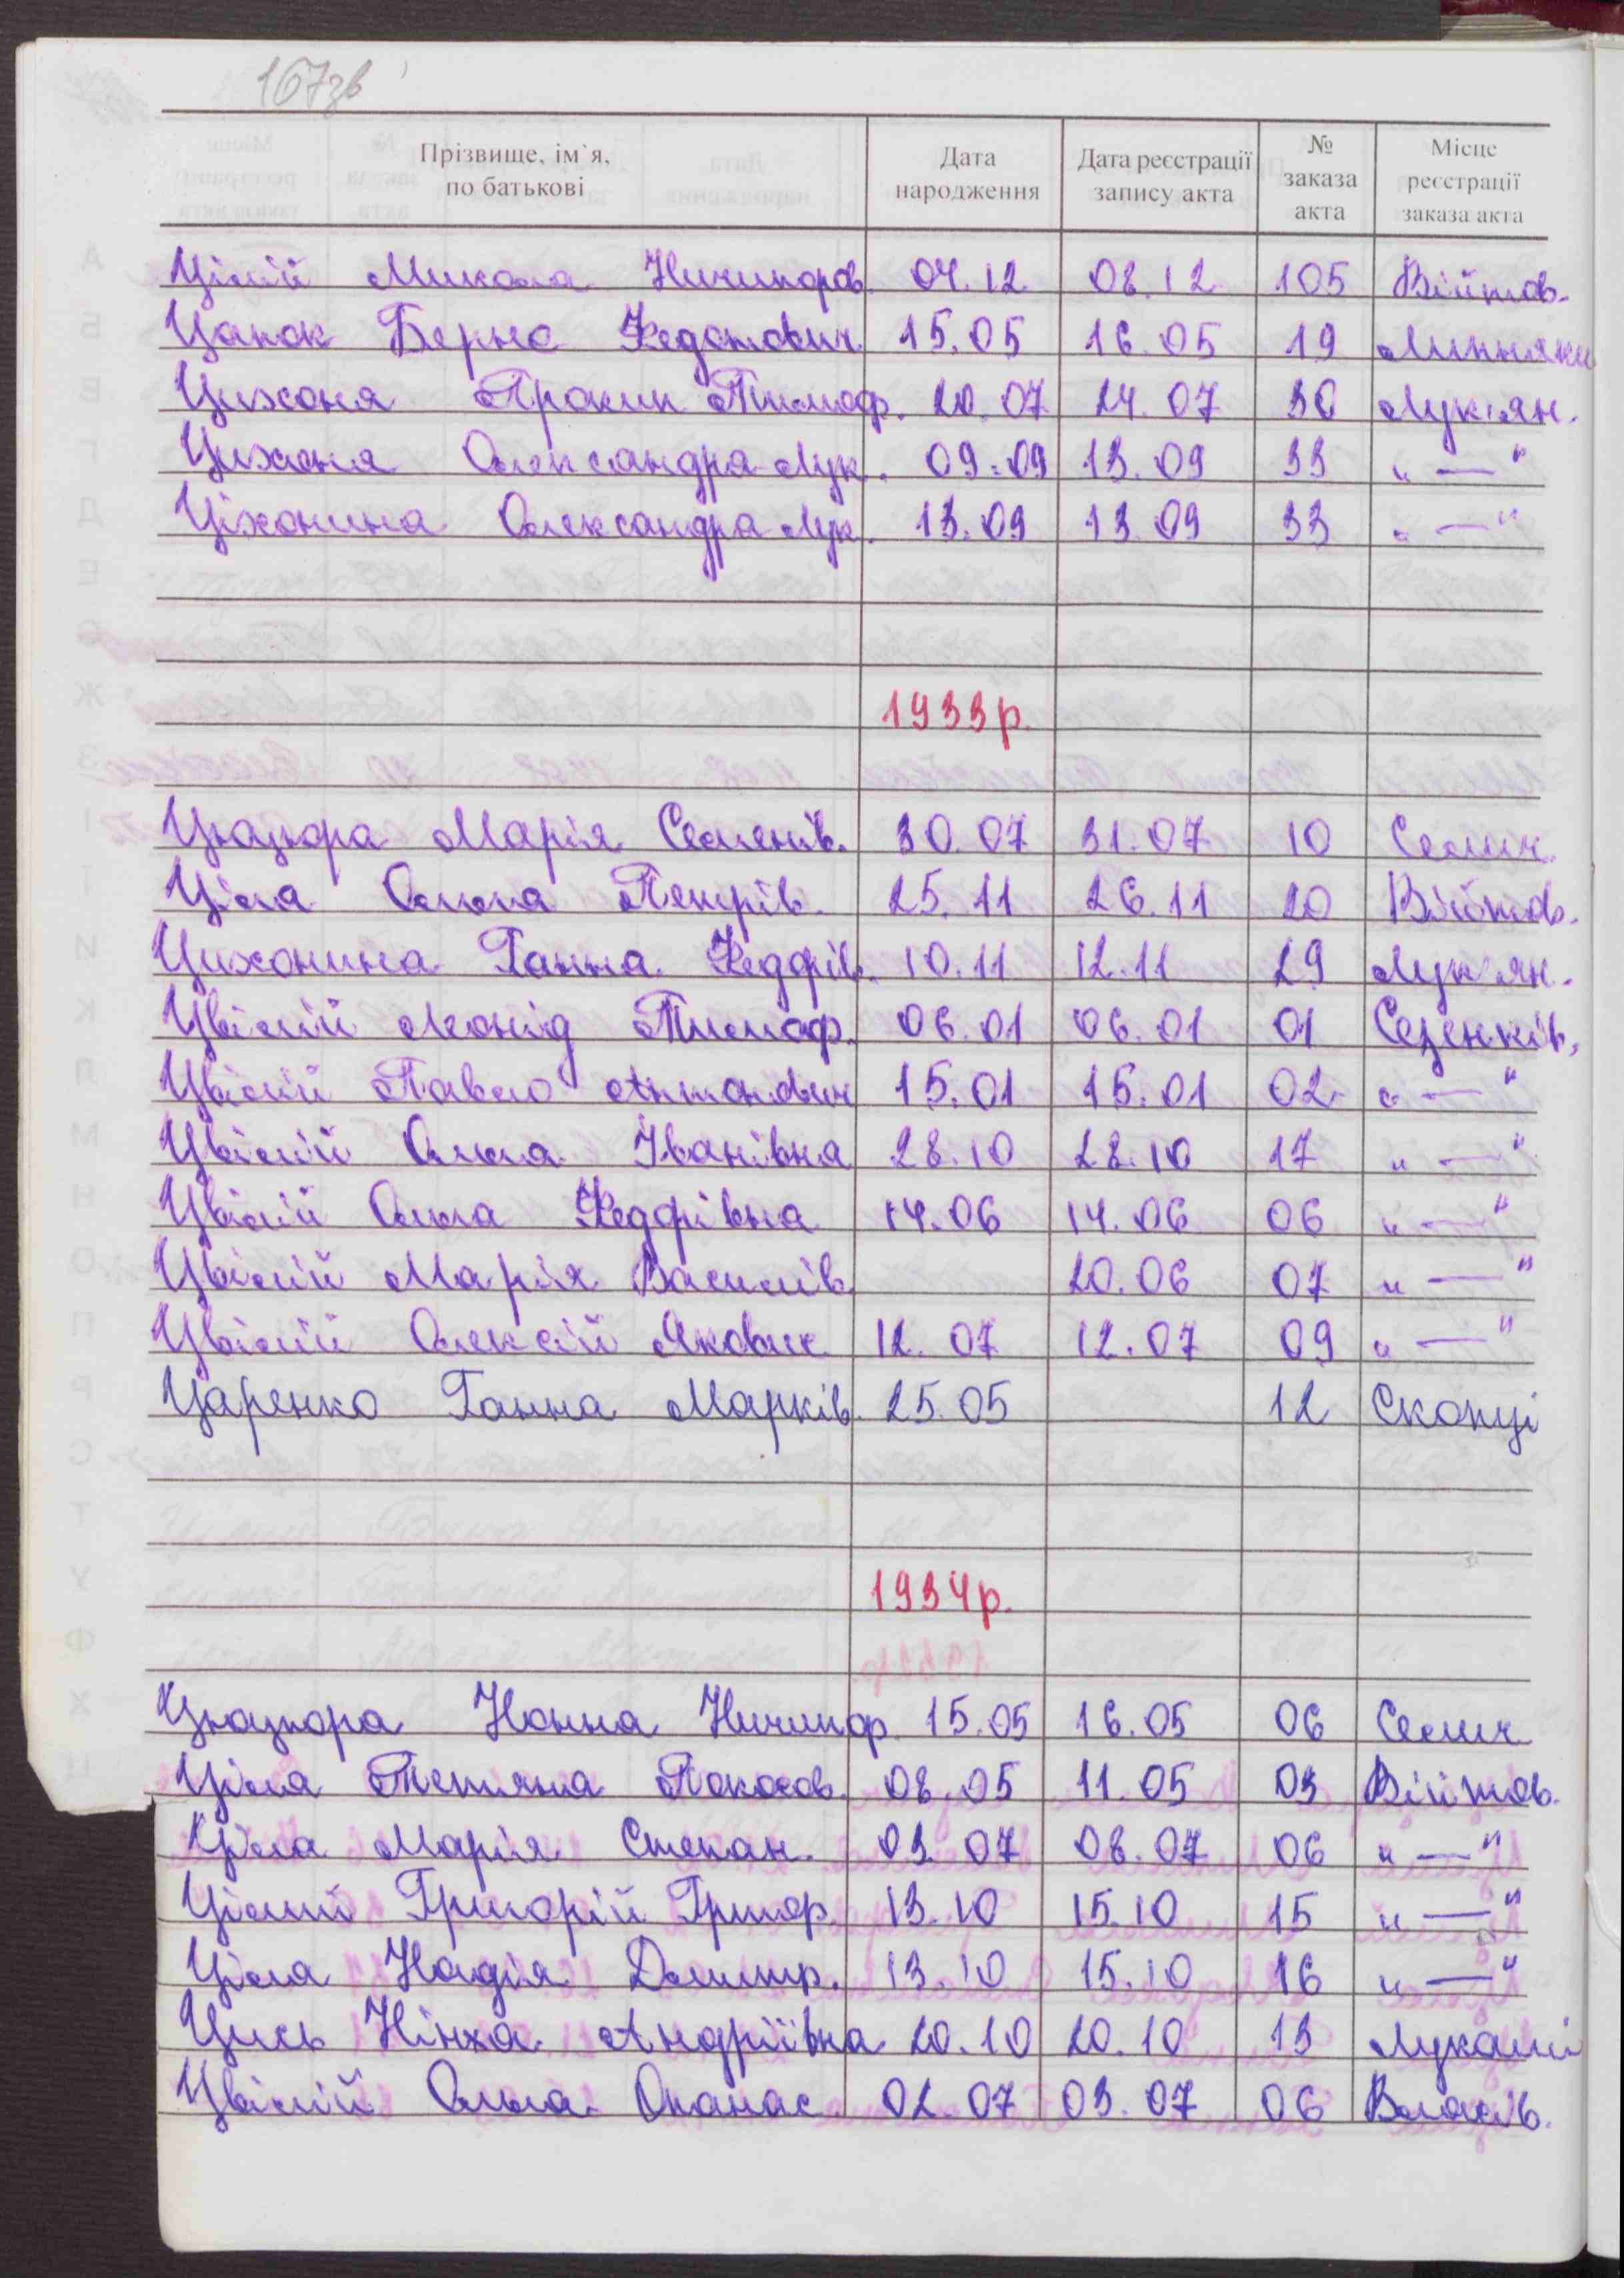 167зв
Прізвище, ім`я, по батькові | Дата народження | Дата реєстрації запису акта | № заказа акта | Місце реєстрації заказа акта
Цілій Микола Ничипоров. 04.12 08.12 105 Війтов.
Цапок Федотович 15.05 16.05 19 Липняки
Цихоня Тимоф. 20.07 24.07 30 Лук'ян.
Цихоня Олександра Лук. 09.09 13.09 33 " — "
Ціхонина Олександра Лук. 13.09 13.09 33 " — "
1933р.
Цюцюра Марія Семенів. 30.07 31.07 10 Селич.
Ціла Ольга Петрів. 25.11 26.11 20 Війтов.
Цихонина Ганна Федорів. 10.11 12.11 29 Лук'ян.
Цвілій Леонід Тимоф. 06.01 06.01 01 Сезенків,
Цвілій Павло Антонович 15.01 15.01 02 " — "
Цвілій Ольга Іванівна 28.10 28.10 17 " — "
Цвілій Ольга Федорівна 14.06 14.06 06 " — "
Цвілій Марія Василів. 20.06 07 " — "
Цвілій Олексій Якович 12.07 12.07 09 " — "
Царенко Ганна Марків. 25.05 12 Скопці
1934р.
Цюцюра Ничипор 15.05 16.05 06 Селич
Ціла Тетяна 08.05 11.05 03 Війтов.
Ціла Марія Степан. 03.07 08.07 06 " — "
Цілий Григорій Григор. 13.10 15.10 15 " — "
Ціла Надія Дмитр. 13.10 15.10 16 " — "
Цись Андріївна 20.10 20.10 13 Лукаші
Цвілій Ольга Опанас 02.07 03.07 06 Власів.